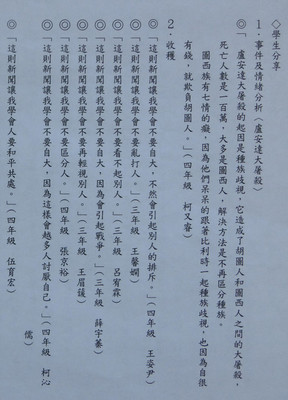 ◇學生分享
1．事件及情緒分析（盧安達大屠殺）
◎「盧安達大屠殺的起因是種族歧視，它造成了胡圖人和圖西人之間的大屠殺，
死亡人數是一百萬，大多是圖西人，解決方法是不再區分種族。
圖西族有七情的癡，因為他們呆呆的跟著比利時一起種族歧視，也因為自很
有錢，就欺負胡圖人。」（四年級 柯又睿）
2．收穫
◎「這則新聞讓我學會不要自大，不然會引起別人的排斥。」（四年級 王姿尹）
◎「這則新聞讓我學會不要亂打人。」（三年級 王馨嫻）
◎「這則新聞讓我學會不要看不起別人。」（三年級 呂宥霖）
◎「這則新聞讓我學會不要自大，因為會引起戰爭。」（三年級 薛宇蓁）
◎「這則新聞讓我學會不要再輕視別人。」（三年級 王眉葭）
◎「這則新聞讓我學會不要區分人。」（四年級 張京裕）
◎「這則新聞讓我學會不要自大，因為這樣會越多人討厭自己。」（四年級 柯沁
儒）
◎「這則新聞讓我學會人要和平共處。」（四年級 伍育宏）